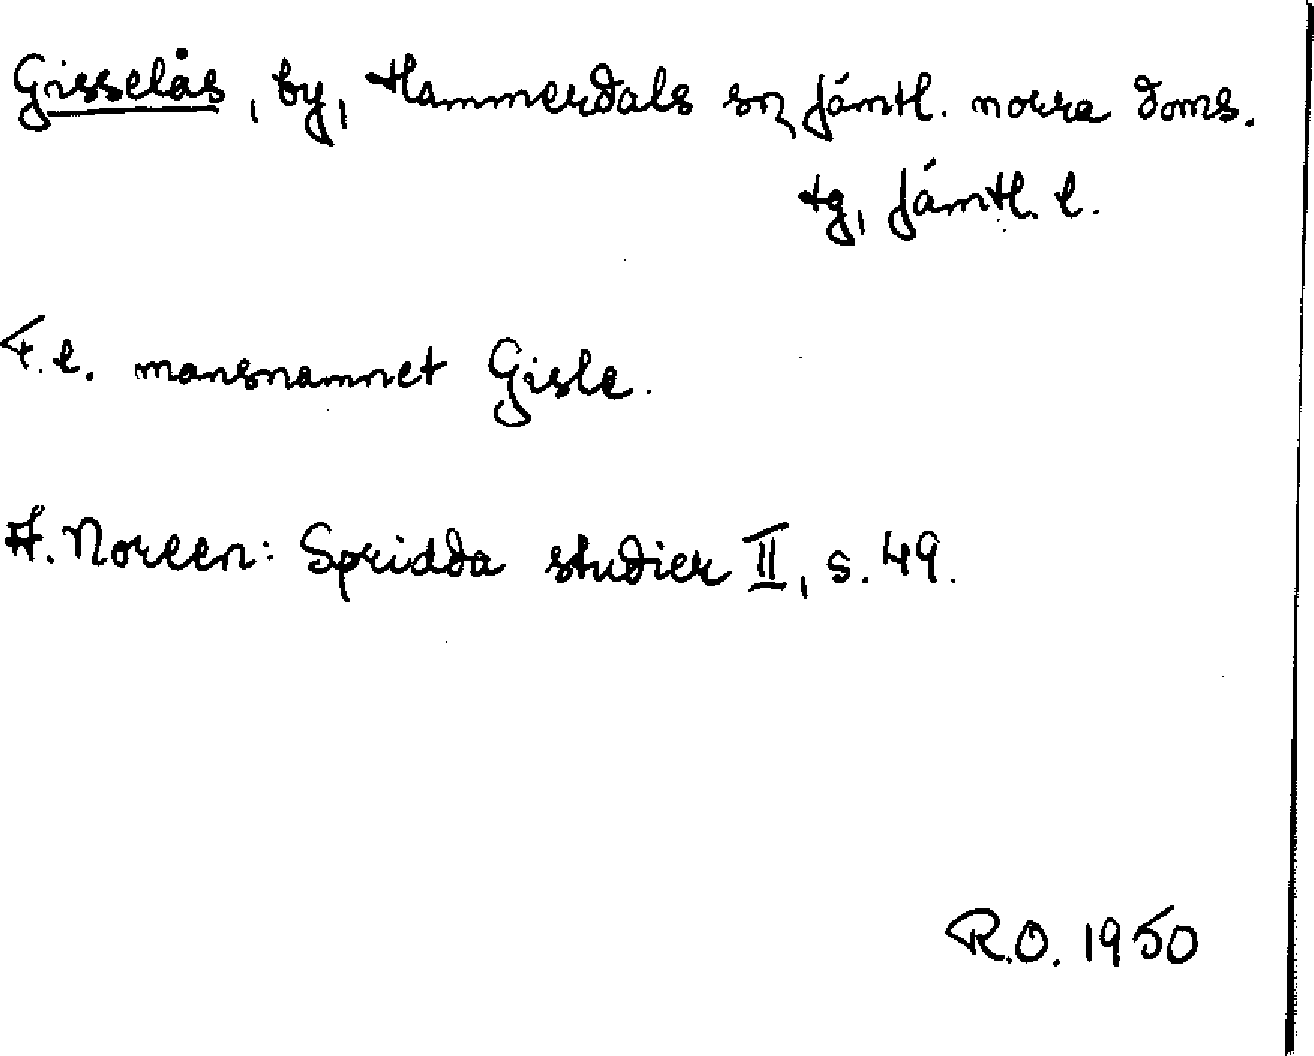 Gisselås, by, Hammerdals sn, Jämtl. norra doms.
tg, Jämtl. l.
F.l. mansnamnet Gisle.
A. Noreen: Spridda studier II, s. 49.
R.O. 1950